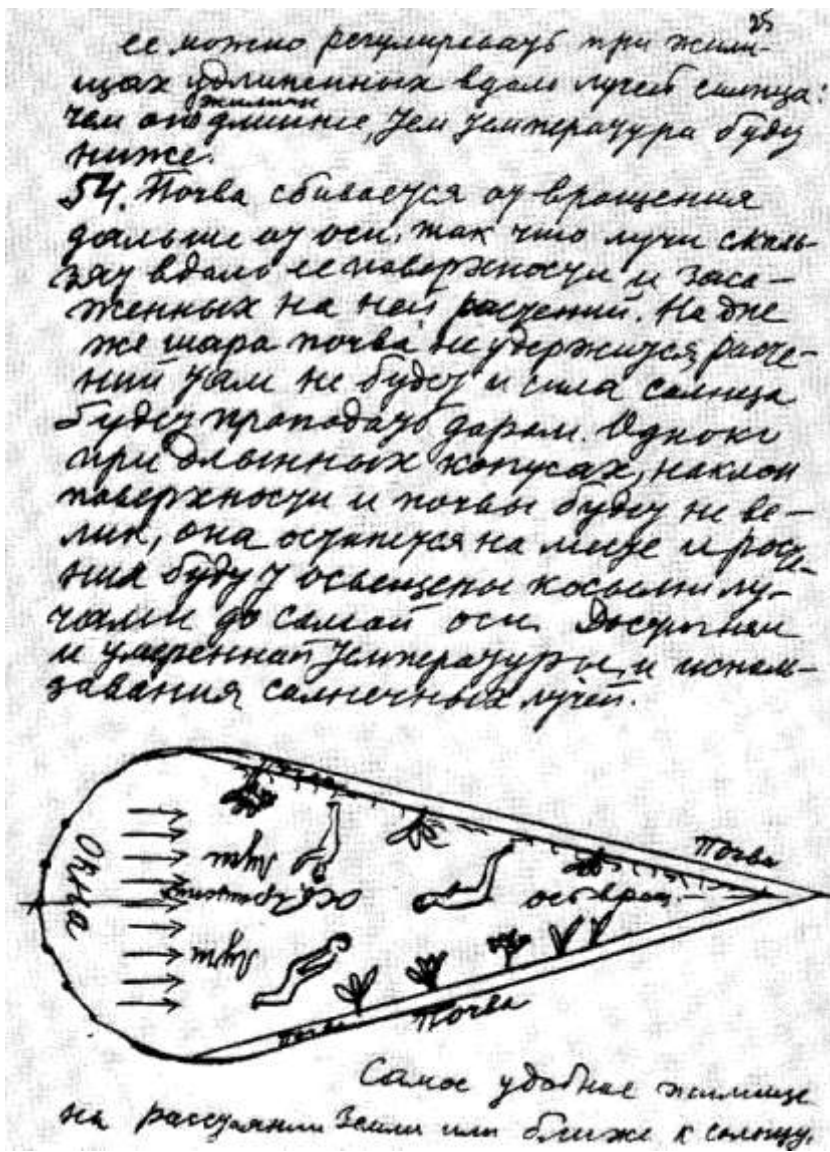 25
ее можно регулировать при жили-
щах удлиненных вдоль лучей солнца:
жилищ
чем оно длиннее, тем температура будет
ниже.
54. Почва сбивается от вращения
дальше от оси, так что лучи сколь-
зят вдоль ее поверхности и заса-
женных на ней растений. На дне
же шара почва не удержится, расте-
ний там не будет и сила солнца
будет пропадать даром. Однако
при длинных конусах, наклон
поверхности и почвы будет не ве-
лик, она останется на месте и расте-
ния будут освещены косыми лу-
чами до самой оси. Достигнем
и умеренной температуры, и исполь-
зования солнечных лучей.
Почва
Почва
Окна
Лучи
Ось вращения
ось вращ.
Лучи
Почва
Почва
Самое удобное жилище
на расстоянии Земли или ближе к солнцу.